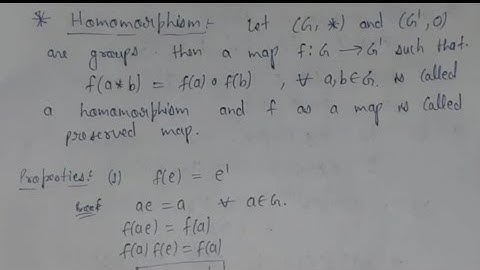 * Homomorphism:- Let (G, *) and (G', o)
are groups. then a map f: G → G' such that
f(a*b) = f(a) o f(b) , ∀ a,b∈G. is called
a homomorphism and f as a map is called
preserved map.
Properties:- (1) f(e) = e'
Proof ae = a ∀ a∈G.
f(ae) = f(a)
f(a) f(e) = f(a)